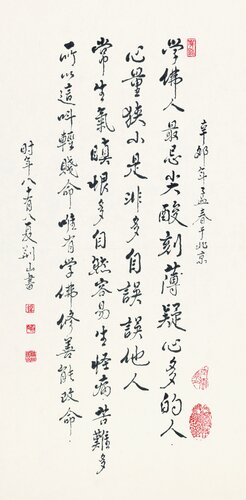 辛卯年孟春于北京
学佛人最忌尖酸刻薄疑心多的人
心量狭小是非多自误误他人
常生氣瞋恨多自然容易生怪病苦難多
所以這叫輕賤命唯有学佛修善能改命
时年八十有八叟刘山書